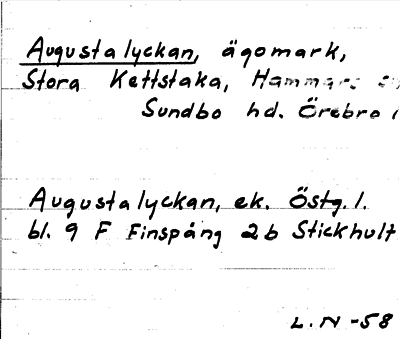 Augustalyckan, ägomark,
Stora Kettstaka, Hammars
Sundbo hd. Örebro
Augustalyckan, ek. Östg. l.
bl. 9 F Finspång 2b Stickhult
L. N -58